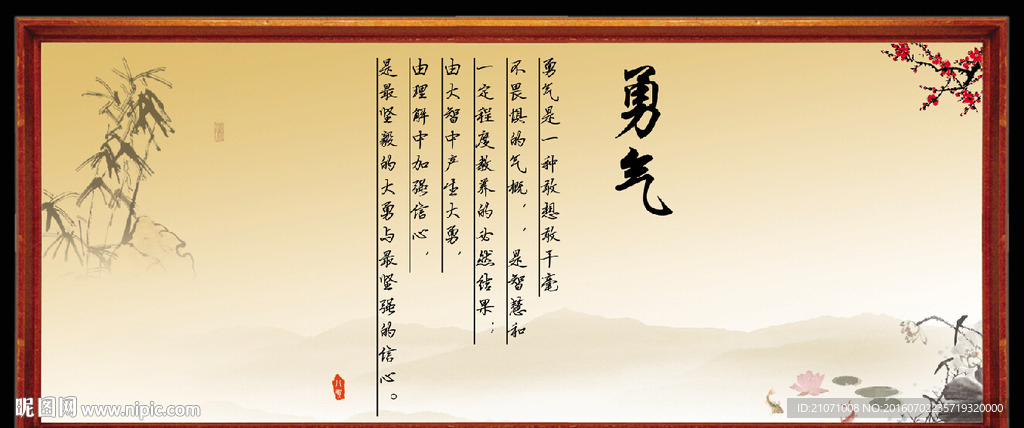 勇气
勇气是一种敢想敢干毫
不畏惧的气概，，是智慧和
一定程度教养的必然结果；
由大智中产生大勇，
由理解中加强信心，
是最坚毅的大勇与最坚强的信心。
昵图网 www.nipic.com
ID:21071008 NO:20160702235719320000